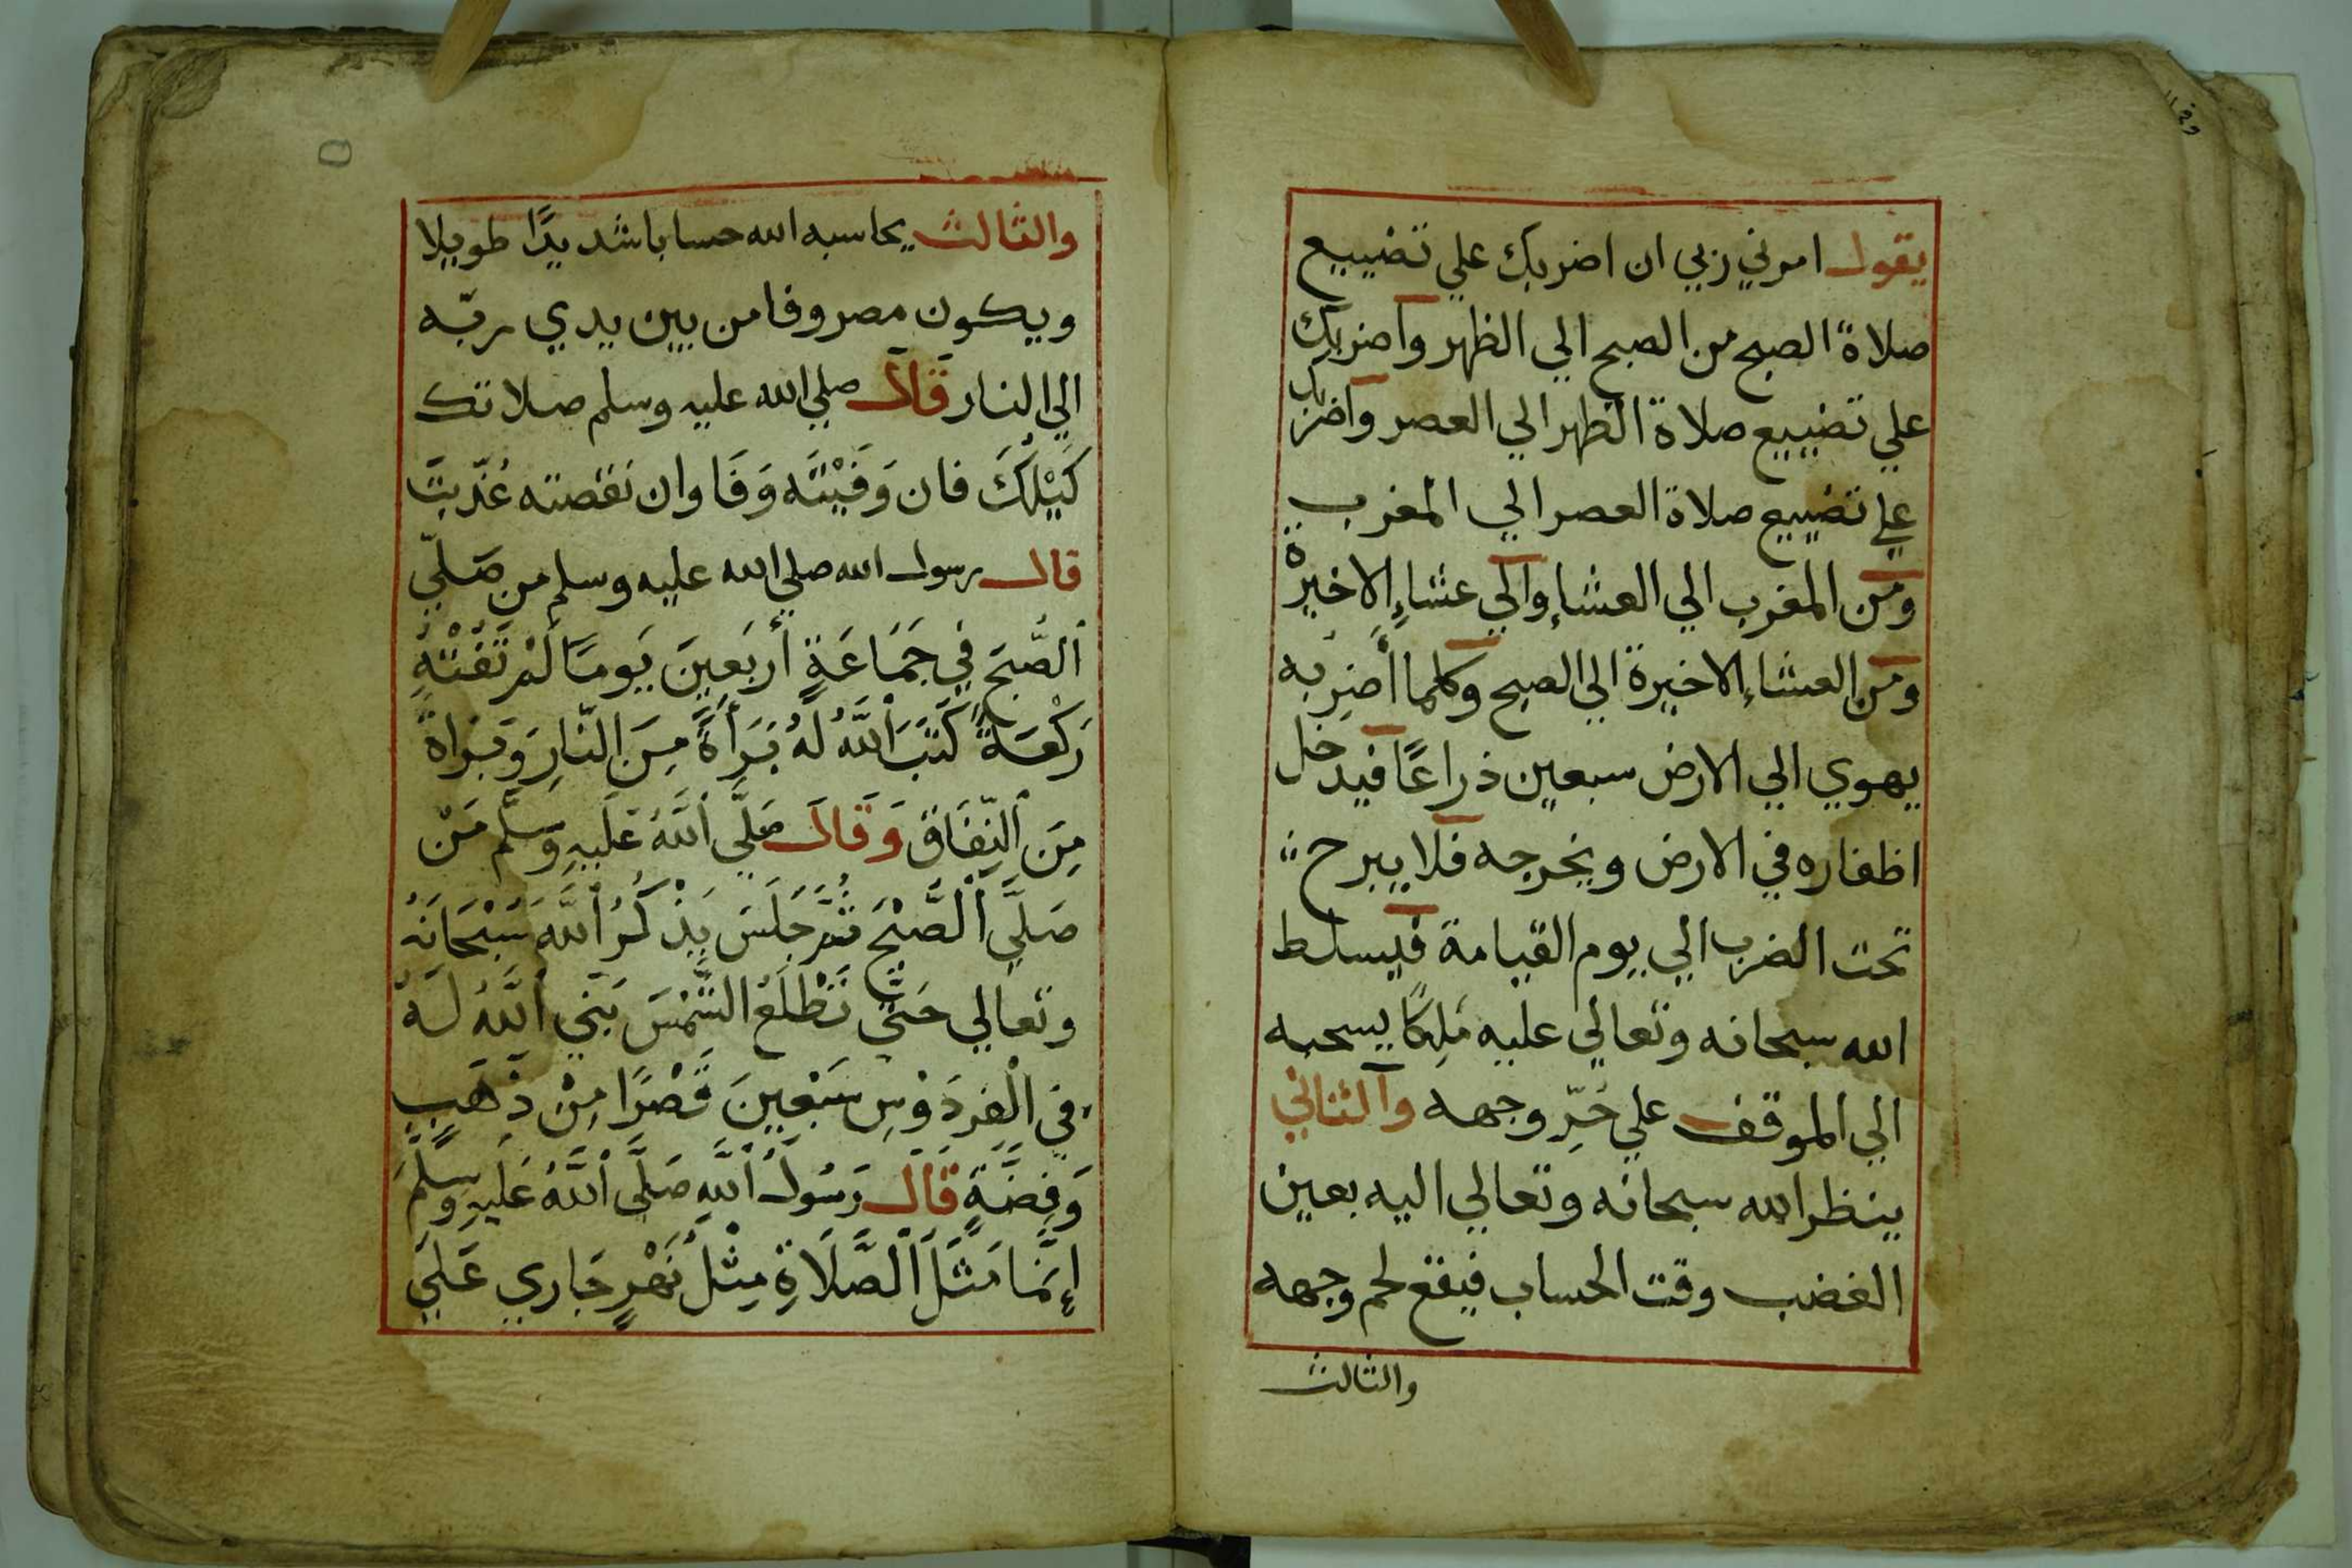 يقول امرني ربي ان اضربك علي تضييع
صلاة الصبح من الصبح الي الظهر واضربك
علي تضييع صلاة الظهر الي العصر واضربك
علي تضييع صلاة العصر الي المغرب
ومن المغرب الي العشاءِ والي عشاءِ الاخيرة
ومن العشاءِ الاخيرة الي الصبح وكلما أضربه
يهوي الي الارض سبعين ذراعًا فيدخل
اظفاره في الارض ويخرجه فلا يبرح
تحت الضرب الي يوم القيامة فيسلط
الله سبحانه وتعالي عليه ملِكًا يسحبه
الي الموقف علي حُرِّ وجهه والثاني
ينظر الله سبحانه وتعالي اليه بعين
الغضب وقت الحساب فيقع لحم وجهه
والثالث
والثالث يحاسبه الله حسابا شديدًا طويلا
ويكون مصروفا من بين يدي ربّه
الي النار قَالَ صلي الله عليه وسلم صلاتك
كَيْلُكَ فان وَفَيْتَه وَفَا وان نقصته عُذّبتَ
قال رسول الله صلي الله عليه وسلم من صَلّي
اَلصُّبحَ فِي جَمَاعَةٍ أَربَعِينَ يَومًا لَمْ تَفُتْهُ
رَكْعَةً كَتَبَ اَللَّهُ لَهُ بَرَأَةً مِنَ النّارِ وَبَراة
مِنَ اَلنِّفَاقِ وَقَالَ صَلَّي اَللَّهُ عَلَيهِ وَسَلَّم مَنْ
صَلَّي اَلْصُّبْحَ ثُمَّ جَلَسَ يَذْكُرُ اَللَّهَ سُبْحَانَهُ
وتعالي حَتَّي تَطْلَعُ الشَّمْسَ بَنَي اَللَّهُ لَهُ
فِي الْفِردَوْسِ سَبْعِينَ قَصْرًا مِنْ ذَهَبٍ
وَفِضَّةٍ قَالَ رَسُولُ اَللَّهِ صَلَّي اَللَّهُ عَلَيهِ وسلَّمَ
إِنَّمَا مَثَلُ اَلْصَّلَاةِ مِثْلُ نَهْرٍ جَارِي عَلَي